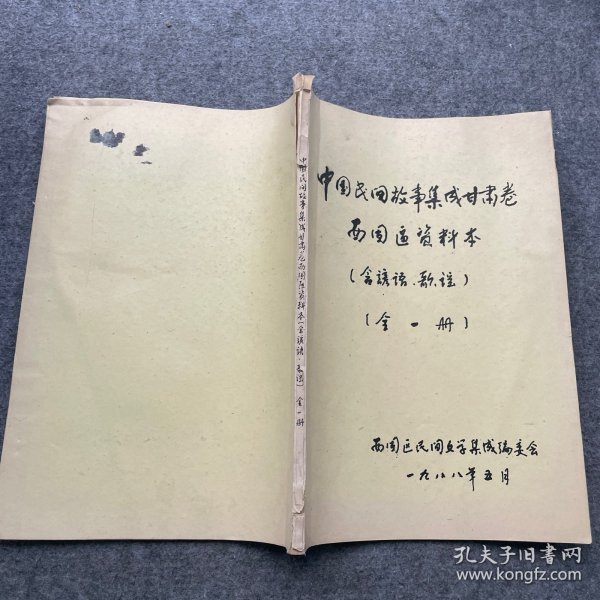 中国民间故事集成甘肃卷
西固区资料本
(含谚语、歌谣)
(全一册)
西固区民间文学集成编委会
一九八八年五月
中国民间故事集成甘肃卷西固区资料本(含谚语·歌谣) 全一册
孔夫子旧书网
www.kongfz.com